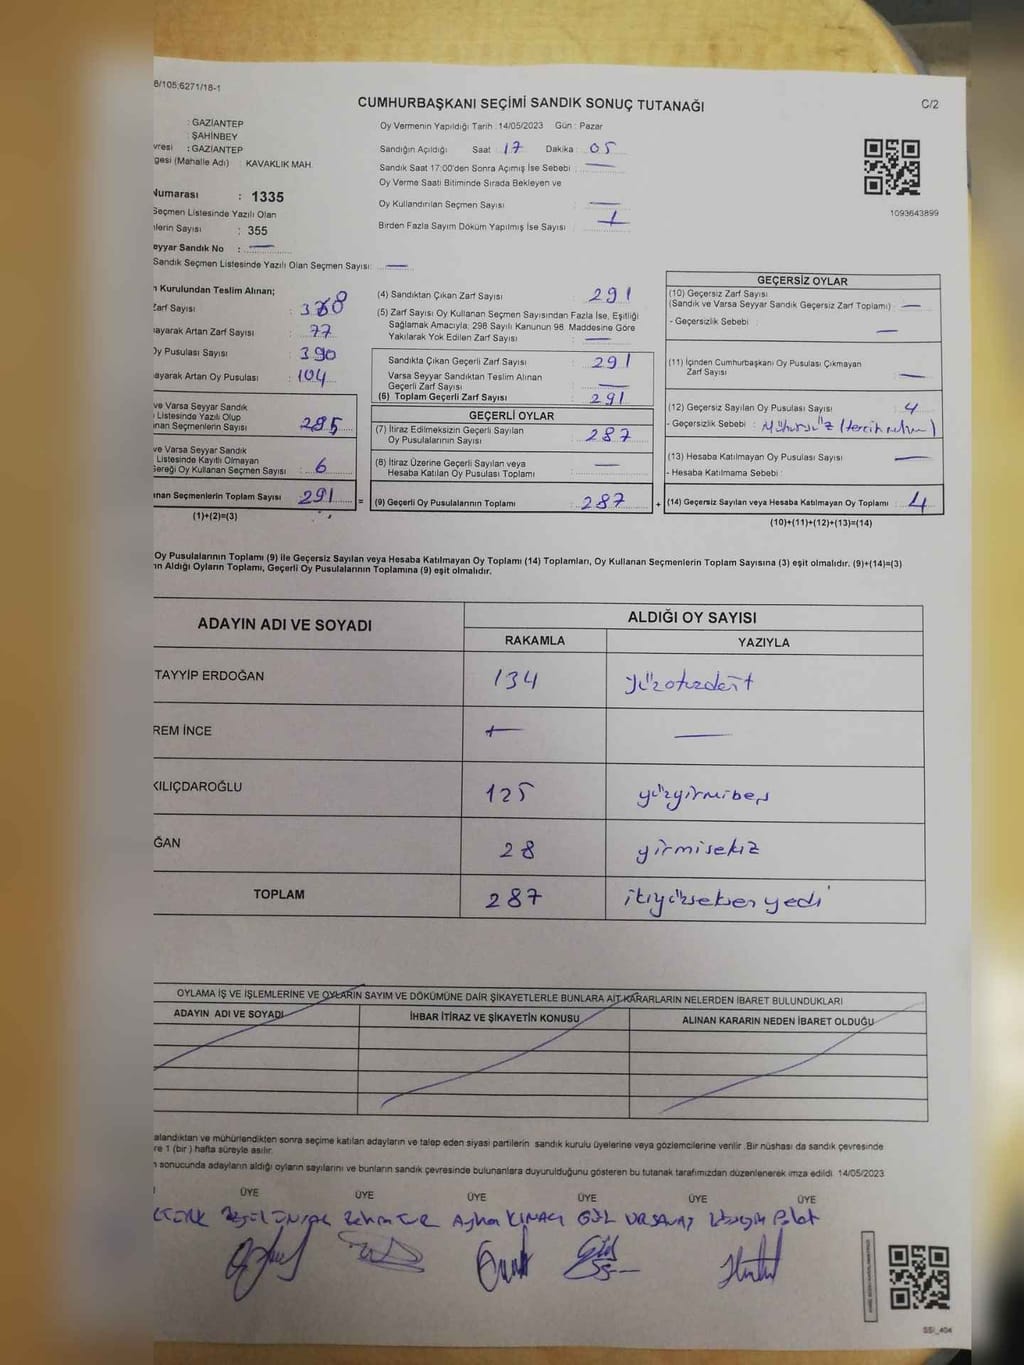 8/105;6271/18-1
CUMHURBAŞKANI SEÇİMİ SANDIK SONUÇ TUTANAĞI
C/2
: GAZİANTEP
: ŞAHİNBEY
vresi : GAZİANTEP
gesi (Mahalle Adı) : KAVAKLIK MAH.
Numarası : 1335
Seçmen Listesinde Yazılı Olan
lerin Sayısı : 355
eyyar Sandık No : —
Sandık Seçmen Listesinde Yazılı Olan Seçmen Sayısı: —
Oy Vermenin Yapıldığı Tarih :14/05/2023 Gün : Pazar
Sandığın Açıldığı Saat : 17 Dakika : 05
Sandık Saat 17:00'den Sonra Açımış İse Sebebi : —
Oy Verme Saati Bitiminde Sırada Bekleyen ve
Oy Kullandırılan Seçmen Sayısı : —
Birden Fazla Sayım Döküm Yapılmış İse Sayısı :
1093643899
n Kurulundan Teslim Alınan;
Zarf Sayısı :
ayarak Artan Zarf Sayısı : 77
Oy Pusulası Sayısı : 390
ayarak Artan Oy Pusulası : 104
ve Varsa Seyyar Sandık
Listesinde Yazılı Olup
nan Seçmenlerin Sayısı : 285
ve Varsa Seyyar Sandık
Listesinde Kayıtlı Olmayan
Gereği Oy Kullanan Seçmen Sayısı : 6
anan Seçmenlerin Toplam Sayısı 291 =
(1)+(2)=(3)
(4) Sandıktan Çıkan Zarf Sayısı : 291
(5) Zarf Sayısı Oy Kullanan Seçmen Sayısından Fazla İse, Eşitliği
Sağlamak Amacıyla; 298 Sayılı Kanunun 98. Maddesine Göre
Yakılarak Yok Edilen Zarf Sayısı : —
Sandıkta Çıkan Geçerli Zarf Sayısı : 291
Varsa Seyyar Sandıktan Teslim Alınan
Geçerli Zarf Sayısı : —
(6) Toplam Geçerli Zarf Sayısı : 291
GEÇERLİ OYLAR
(7) İtiraz Edilmeksizin Geçerli Sayılan
Oy Pusulalarının Sayısı : 287
(8) İtiraz Üzerine Geçerli Sayılan veya
Hesaba Katılan Oy Pusulası Toplamı : —
(9) Geçerli Oy Pusulalarının Toplamı : 287 +
GEÇERSİZ OYLAR
(10) Geçersiz Zarf Sayısı
(Sandık ve Varsa Seyyar Sandık Geçersiz Zarf Toplamı) : —
- Geçersizlik Sebebi : —
(11) İçinden Cumhurbaşkanı Oy Pusulası Çıkmayan
Zarf Sayısı : —
(12) Geçersiz Sayılan Oy Pusulası Sayısı : 4
- Geçersizlik Sebebi : Mühürsüz
(13) Hesaba Katılmayan Oy Pusulası Sayısı : —
- Hesaba Katılmama Sebebi :
(14) Geçersiz Sayılan veya Hesaba Katılmayan Oy Toplamı : 4
(10)+(11)+(12)+(13)=(14)
Oy Pusulalarının Toplamı (9) ile Geçersiz Sayılan veya Hesaba Katılmayan Oy Toplamı (14) Toplamları, Oy Kullanan Seçmenlerin Toplam Sayısına (3) eşit olmalıdır. (9)+(14)=(3)
ın Aldığı Oyların Toplamı, Geçerli Oy Pusulalarının Toplamına (9) eşit olmalıdır.
ADAYIN ADI VE SOYADI
ALDIĞI OY SAYISI
RAKAMLA YAZIYLA
TAYYİP ERDOĞAN 134 yüzotuzdört
REM İNCE — —
KILIÇDAROĞLU 125 yüzyirmibeş
ĞAN 28 yirmisekiz
TOPLAM 287 ikiyüzseksenyedi
OYLAMA İŞ VE İŞLEMLERİNE VE OYLARIN SAYIM VE DÖKÜMÜNE DAİR ŞİKAYETLERLE BUNLARA AİT KARARLARIN NELERDEN İBARET BULUNDUKLARI
ADAYIN ADI VE SOYADI İHBAR İTİRAZ VE ŞİKAYETİN KONUSU ALINAN KARARIN NEDEN İBARET OLDUĞU
alandıktan ve mühürlendikten sonra seçime katılan adayların ve talep eden siyasi partilerin sandık kurulu üyelerine veya gözlemcilerine verilir .Bir nüshası da sandık çevresinde
re 1 (bir ) hafta süreyle asılır.
n sonucunda adayların aldığı oyların sayılarını ve bunların sandık çevresinde bulunanlara duyurulduğunu gösteren bu tutanak tarafımızdan düzenlenerek imza edildi. 14/05/2023
ÜYE ÜYE ÜYE ÜYE ÜYE ÜYE
Ayhan KINACI GÜL URSAVAŞ Hüseyin Polat
SSİ_404